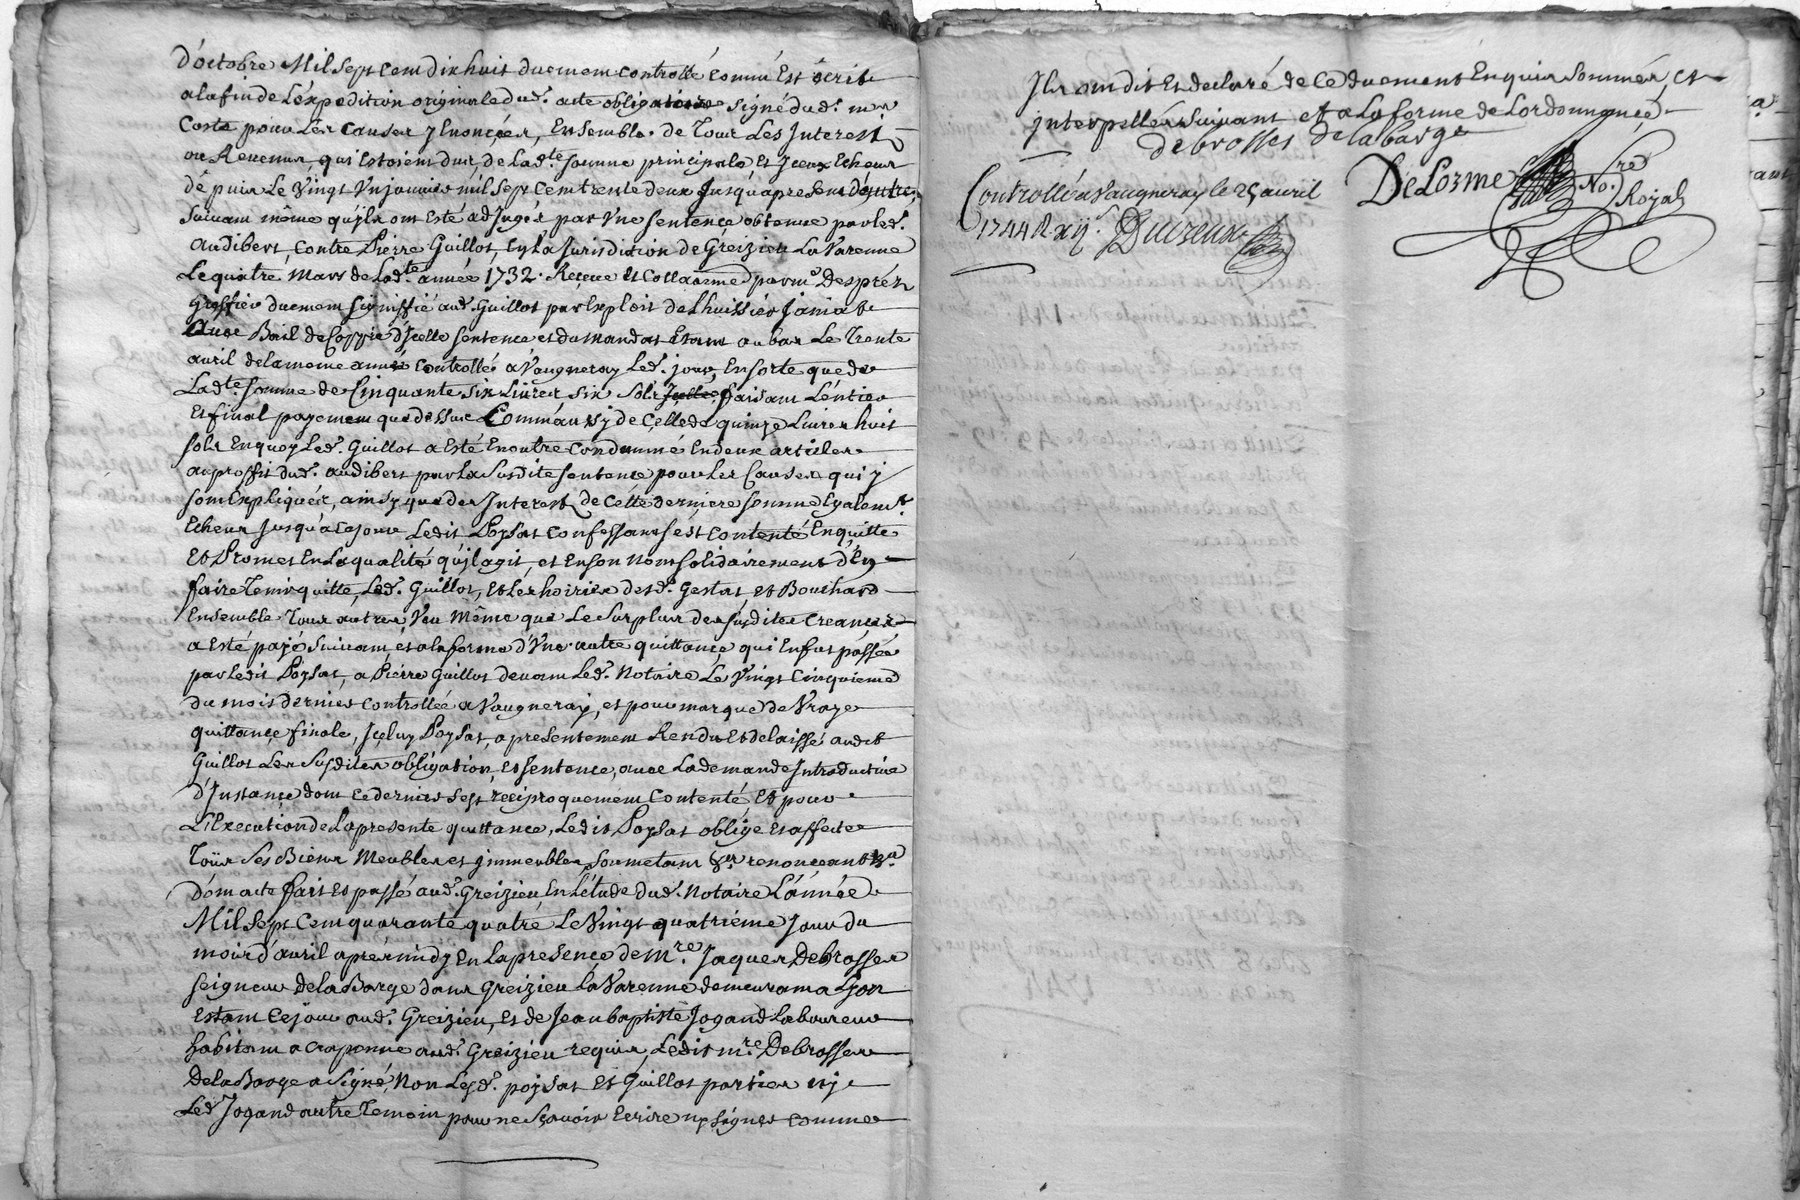 d'octobre Mil sept cent dix huit duement controllé comme est écrit
a la fin de l'expedition originale dud. acte obligatoire signé dud. mre
Coste pour les causes y Enoncées, Ensemble de Tous Les Interest
ou Revenus qui Estoient dus de Lad.te somme principale et Iceux Echeus
dépuis Le Vingt un janvier mil sept cent trente deux jusqu'a present
Suivant même qu'jls ont Esté adjugés par Vne sentence obtenue par led.
audibert, contre Pierre Guillot, En la Jurisdiction de Greizieu La Varenne
Le quatre Mars de Lad.te année 1732. Reçeue et Collationné par mr Després
Greffier duement signiffié aud. Guillot par Exploit de L'huissier
Avec Bail de Coppie d'jcelle sentence et du mandat Etant au bas Le Trente
avril de la meme année controllé a Vaugneray Led. jour, En sorte que de
Lad.te somme de Cinquante six Livres six sols faisant L'entier
Et final payement que dessus Comm'aussy de Celle de quinze Livres huit
sols En quoy Led. Guillot a Esté En outre Condamné En deux articles
au proffit dud. audibert par La Susdite sentence pour Les Causes qui y
sont Expliquées, ainsy que des Interest de Cette derniere somme Egalemt.
Echeus jusqu'a ce jour Ledit Poysat confessant s'est contenté En quitte
Et Promet En La qualité qu'jl agit, et En son nom solidairement d'En
faire Tenir quitte, Led. Guillot, et Les hoiries desd. Gestas et Bouchard
Ensemble Tous autres, Veu Même que Le Surplus des susdites Creances
a Esté payé Suivant, et a la forme d'Vne autre quittance qui En fut passée
par Ledit Poysat, a Pierre Guillot devant Led. Notaire Le Vingt Cinquieme
du mois dernier controllée a Vaugneray, et pour marque de Vraye
quittance finale, jceluy Poysat, a presentement Rendu Et delaissé audit
Guillot Les Susdites obligation, et sentence, avec La demande Introductive
d'Instance dont ce dernier s'est reciproquement Contenté Et pour
L'Execution de La presente quittance, Ledit Poysat oblige Et affecte
Toûs Ses Biens Meubles et jmmeubles, soumetant &a renonceant &a
Dont acte fait Et passé aud. Greizieu En L'étude dud. Notaire L'année
Mil sept Cent quarante quatre Le Vingt quatriéme Jour du
mois d'avril aprés midy En La presence de Mre. Jaques Debrosses
Seigneur de la Barge dans Greizieu la Varenne demeurant a Lyon
Estant Ce jour aud. Greizieu, et de Jean baptiste Jogand Laboureur
habitant a Craponne aud. Greizieu requis, Ledit mre. Debrosses
De la Barge a Signé, Non Lesd. Poysat Et Guillot parties ny
Led. Jogand autre Temoin pour ne sçavoir Ecrire ny signer comme
Ils ont dit Et declaré de Ce duement Enquis Sommés, et
jnterpellés suivant et a La forme de Lordonnance
debrosses de la barge
Controllé a Vaugneray le 25 avril
1744 R xij s.
DeLorme No.re Royal